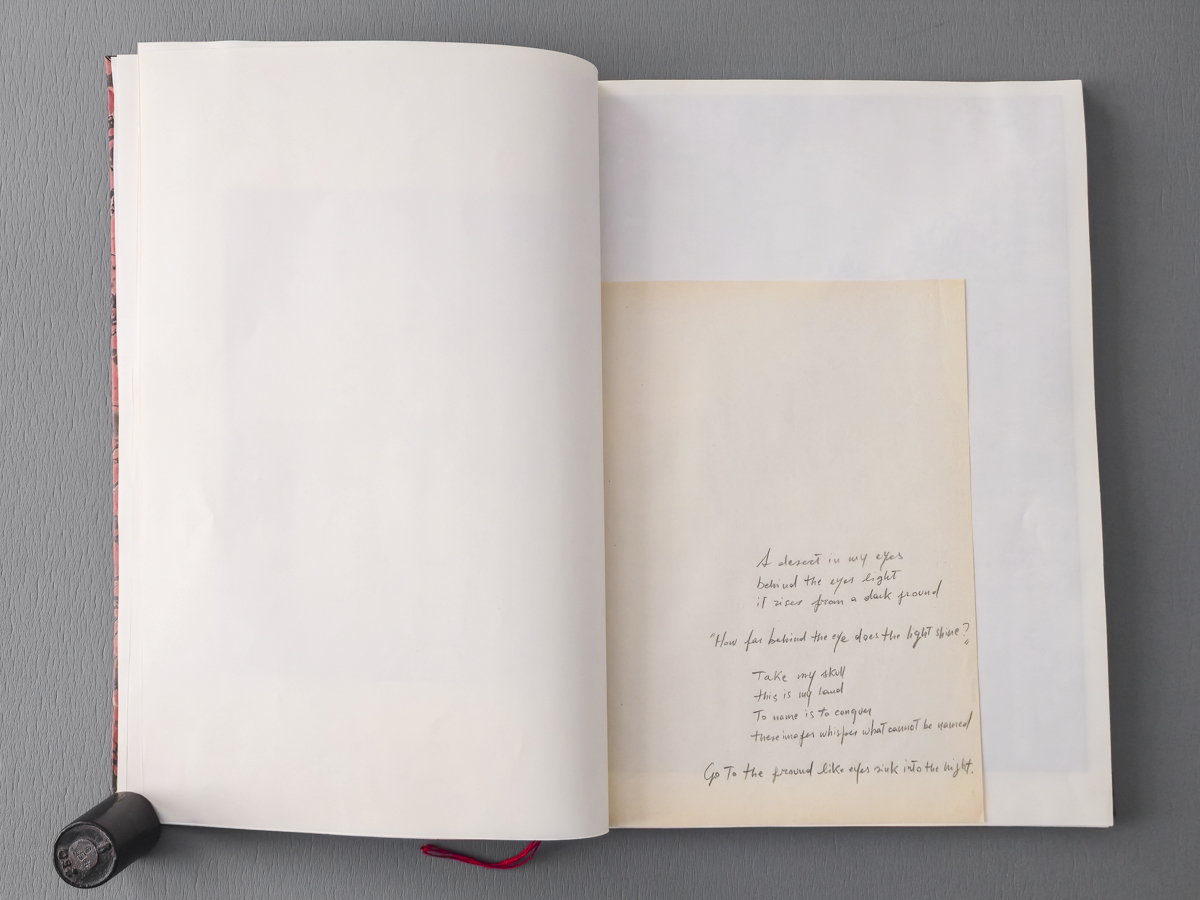 A desert in my eyes
behind the eyes light
it rises from a dark ground
"How far behind the eye does the light shine?"
Take my skull
this is my land
To name is to conquer
these images whisper what cannot be named
Go To the ground like eyes sink into the night.